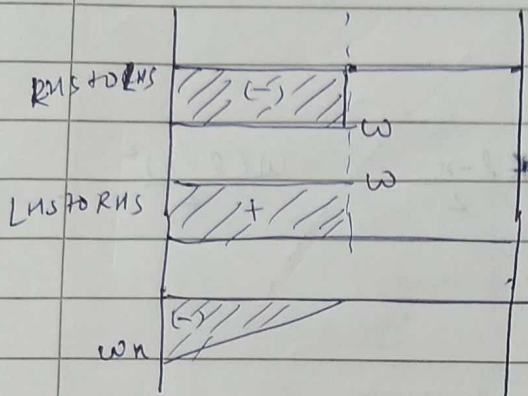 RHS to LHS (-)
ω
ω
LHS to RHS +
(-)
ωx